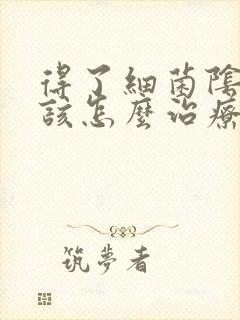 得了細菌陰
該怎麼治療
筑夢者